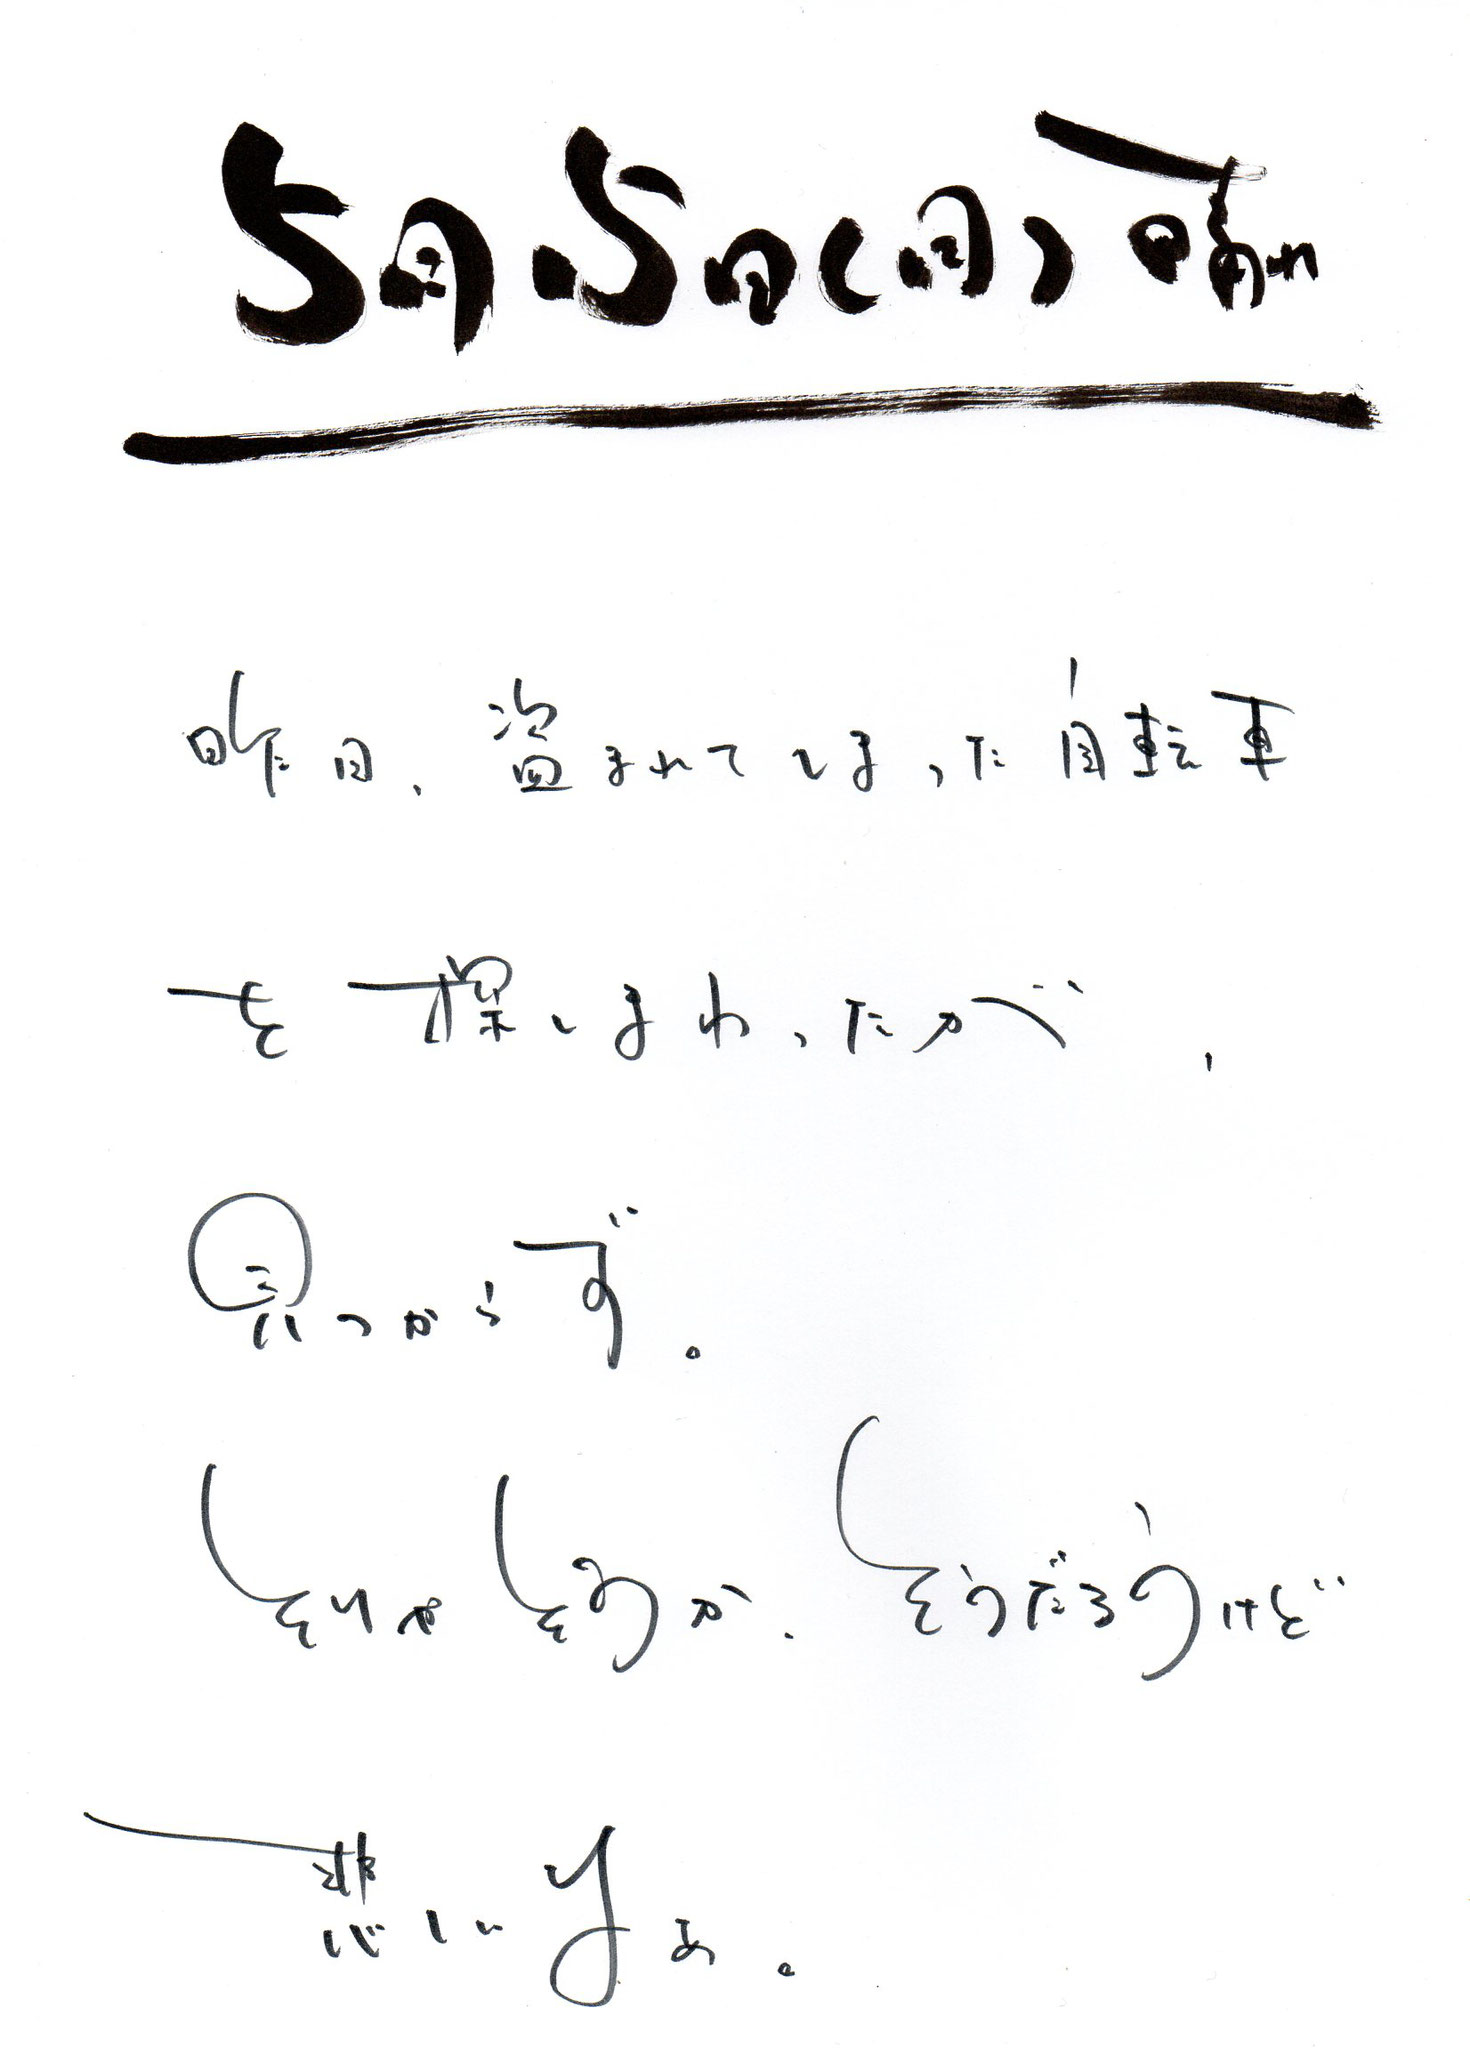 5月5日(月)晴れ
昨日、盗まれてしまった自転車
を探しまわったが、
見つからず。
そりゃそうか、そうだろうけど
悲しいよなぁ。